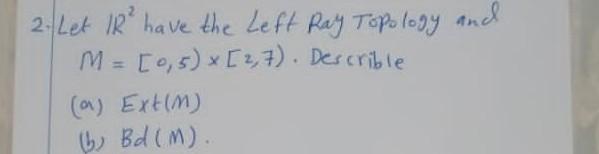 2. Let ℝ² have the Left Ray Topology and
M = [0,5) × [2,7). Describle
(a) Ext(M)
(b) Bd(M).